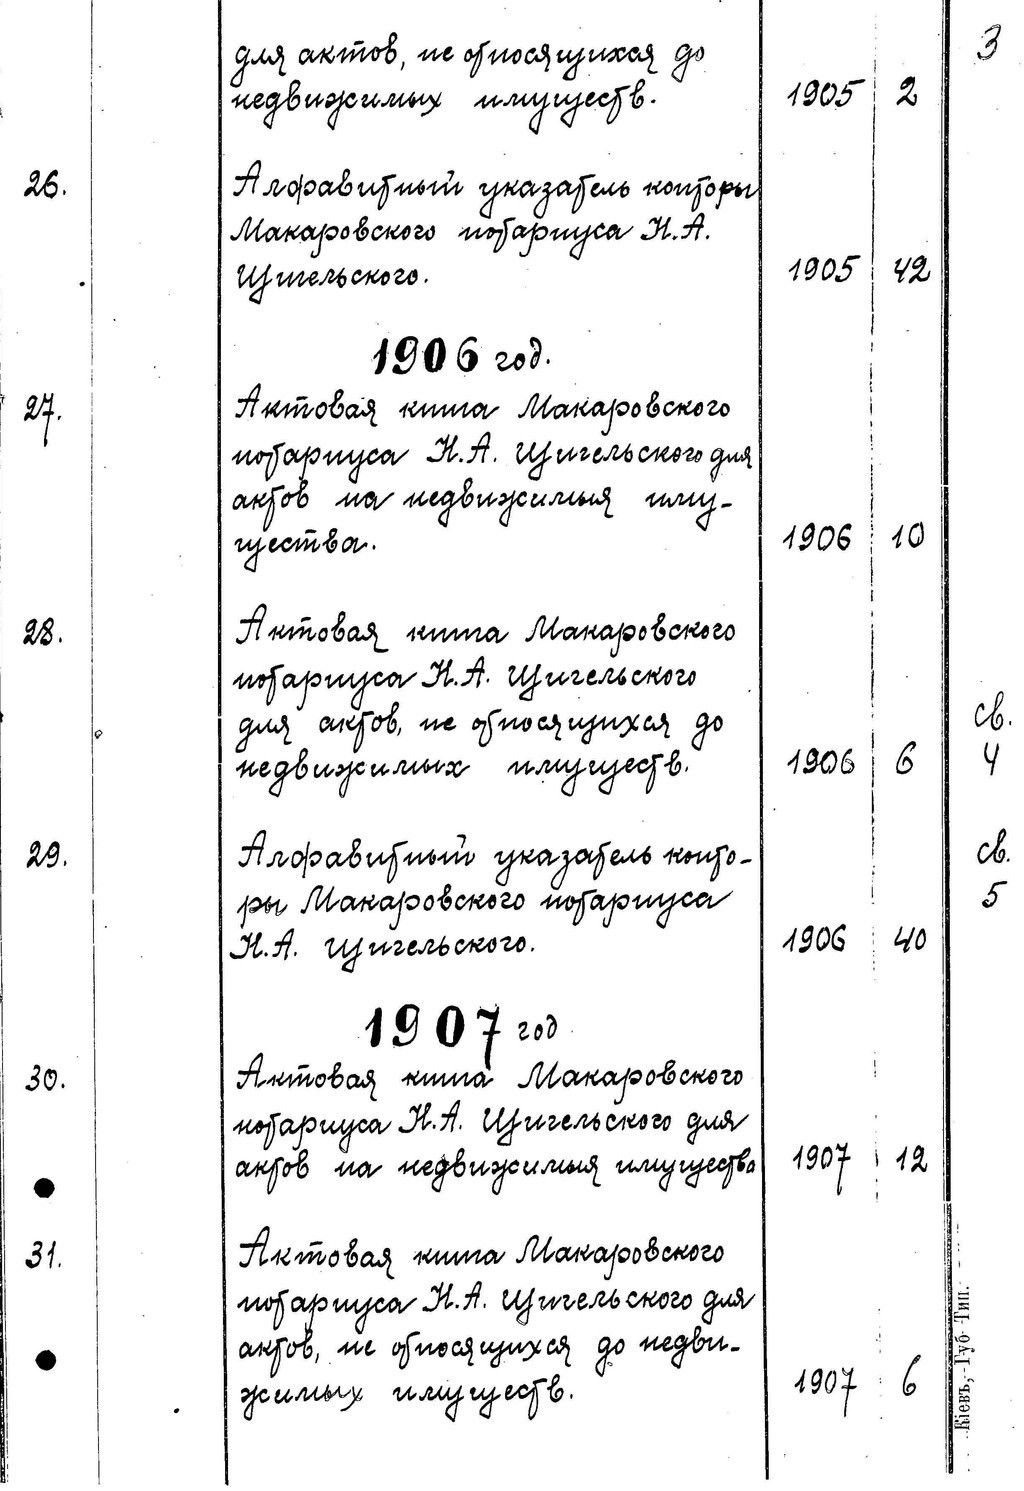 3
для актов, не относящихся до
недвижимых имуществ. 1905 2
26. Алфавитный указатель конторы
Макаровского нотариуса Н.А.
Щигельского. 1905 42
1906 год.
27. Актовая книга Макаровского
нотариуса Н.А. Щигельского для
актов на недвижимыя иму-
щества. 1906 10
28. Актовая книга Макаровского
нотариуса Н.А. Щигельского
для актов, не относящихся до св.
недвижимых имуществ. 1906 6 4
29. Алфавитный указатель конто- св.
ры Макаровского нотариуса 5
Н.А. Щигельского. 1906 40
1907 год
30. Актовая книга Макаровского
нотариуса Н.А. Щигельского для
актов на недвижимыя имущества 1907 12
31. Актовая книга Макаровского
нотариуса Н.А. Щигельского для
актов, не относящихся до недви-
жимых имуществ. 1907 6
Кіевъ, Губ Тип.